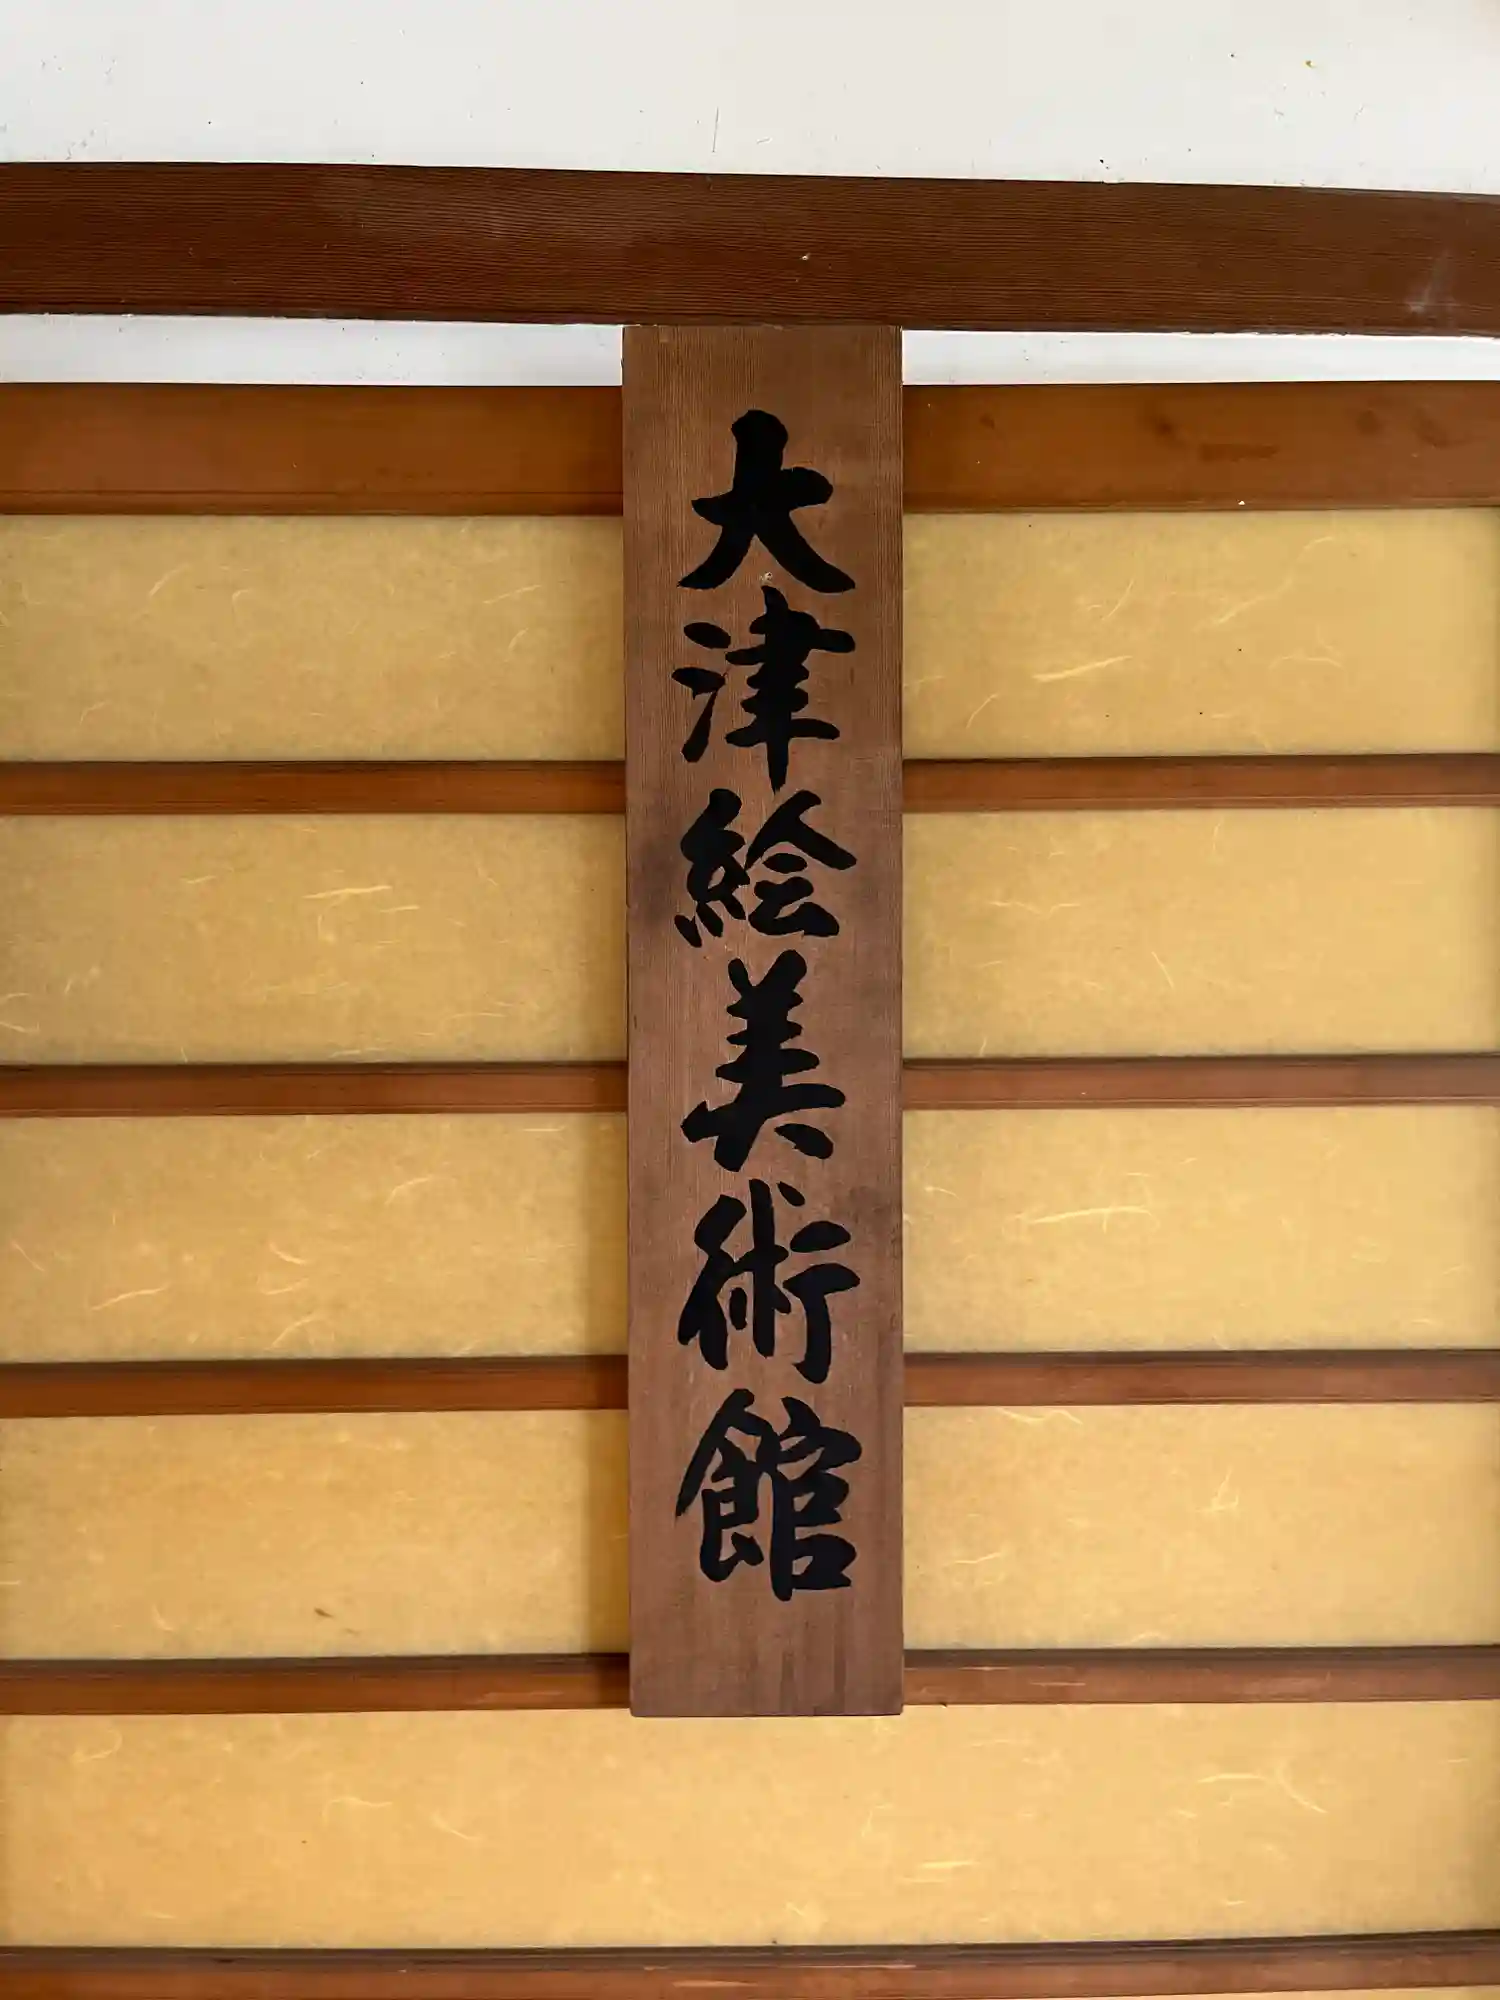 大津絵美術館